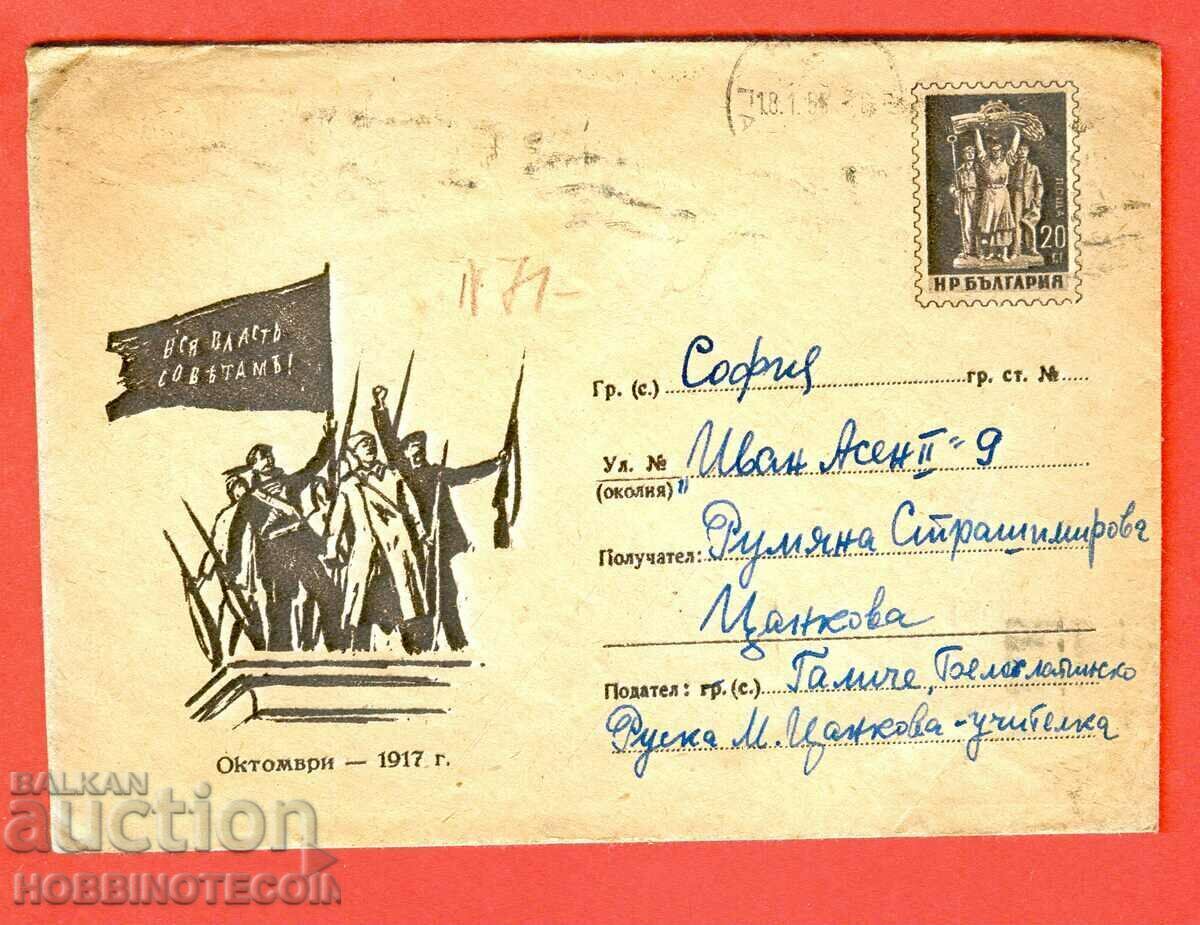 18.1.5
ПОЩА
20 ст
НР БЪЛГАРИЯ
N 71-
ВСЯ ВЛАСТЬ
СОВѢТАМЪ!
Гр. (с.) София гр. ст. №
Ул. № Иван Асен II - 9
(околия)
Получател: Румяна Страшимирова
Цанкова
Подател: гр. (с.) Галиче, Белослатинско
Руска М. Цанкова - учителка
Октомври — 1917 г.
BALKAN
auction
HOBBINOTECOIN